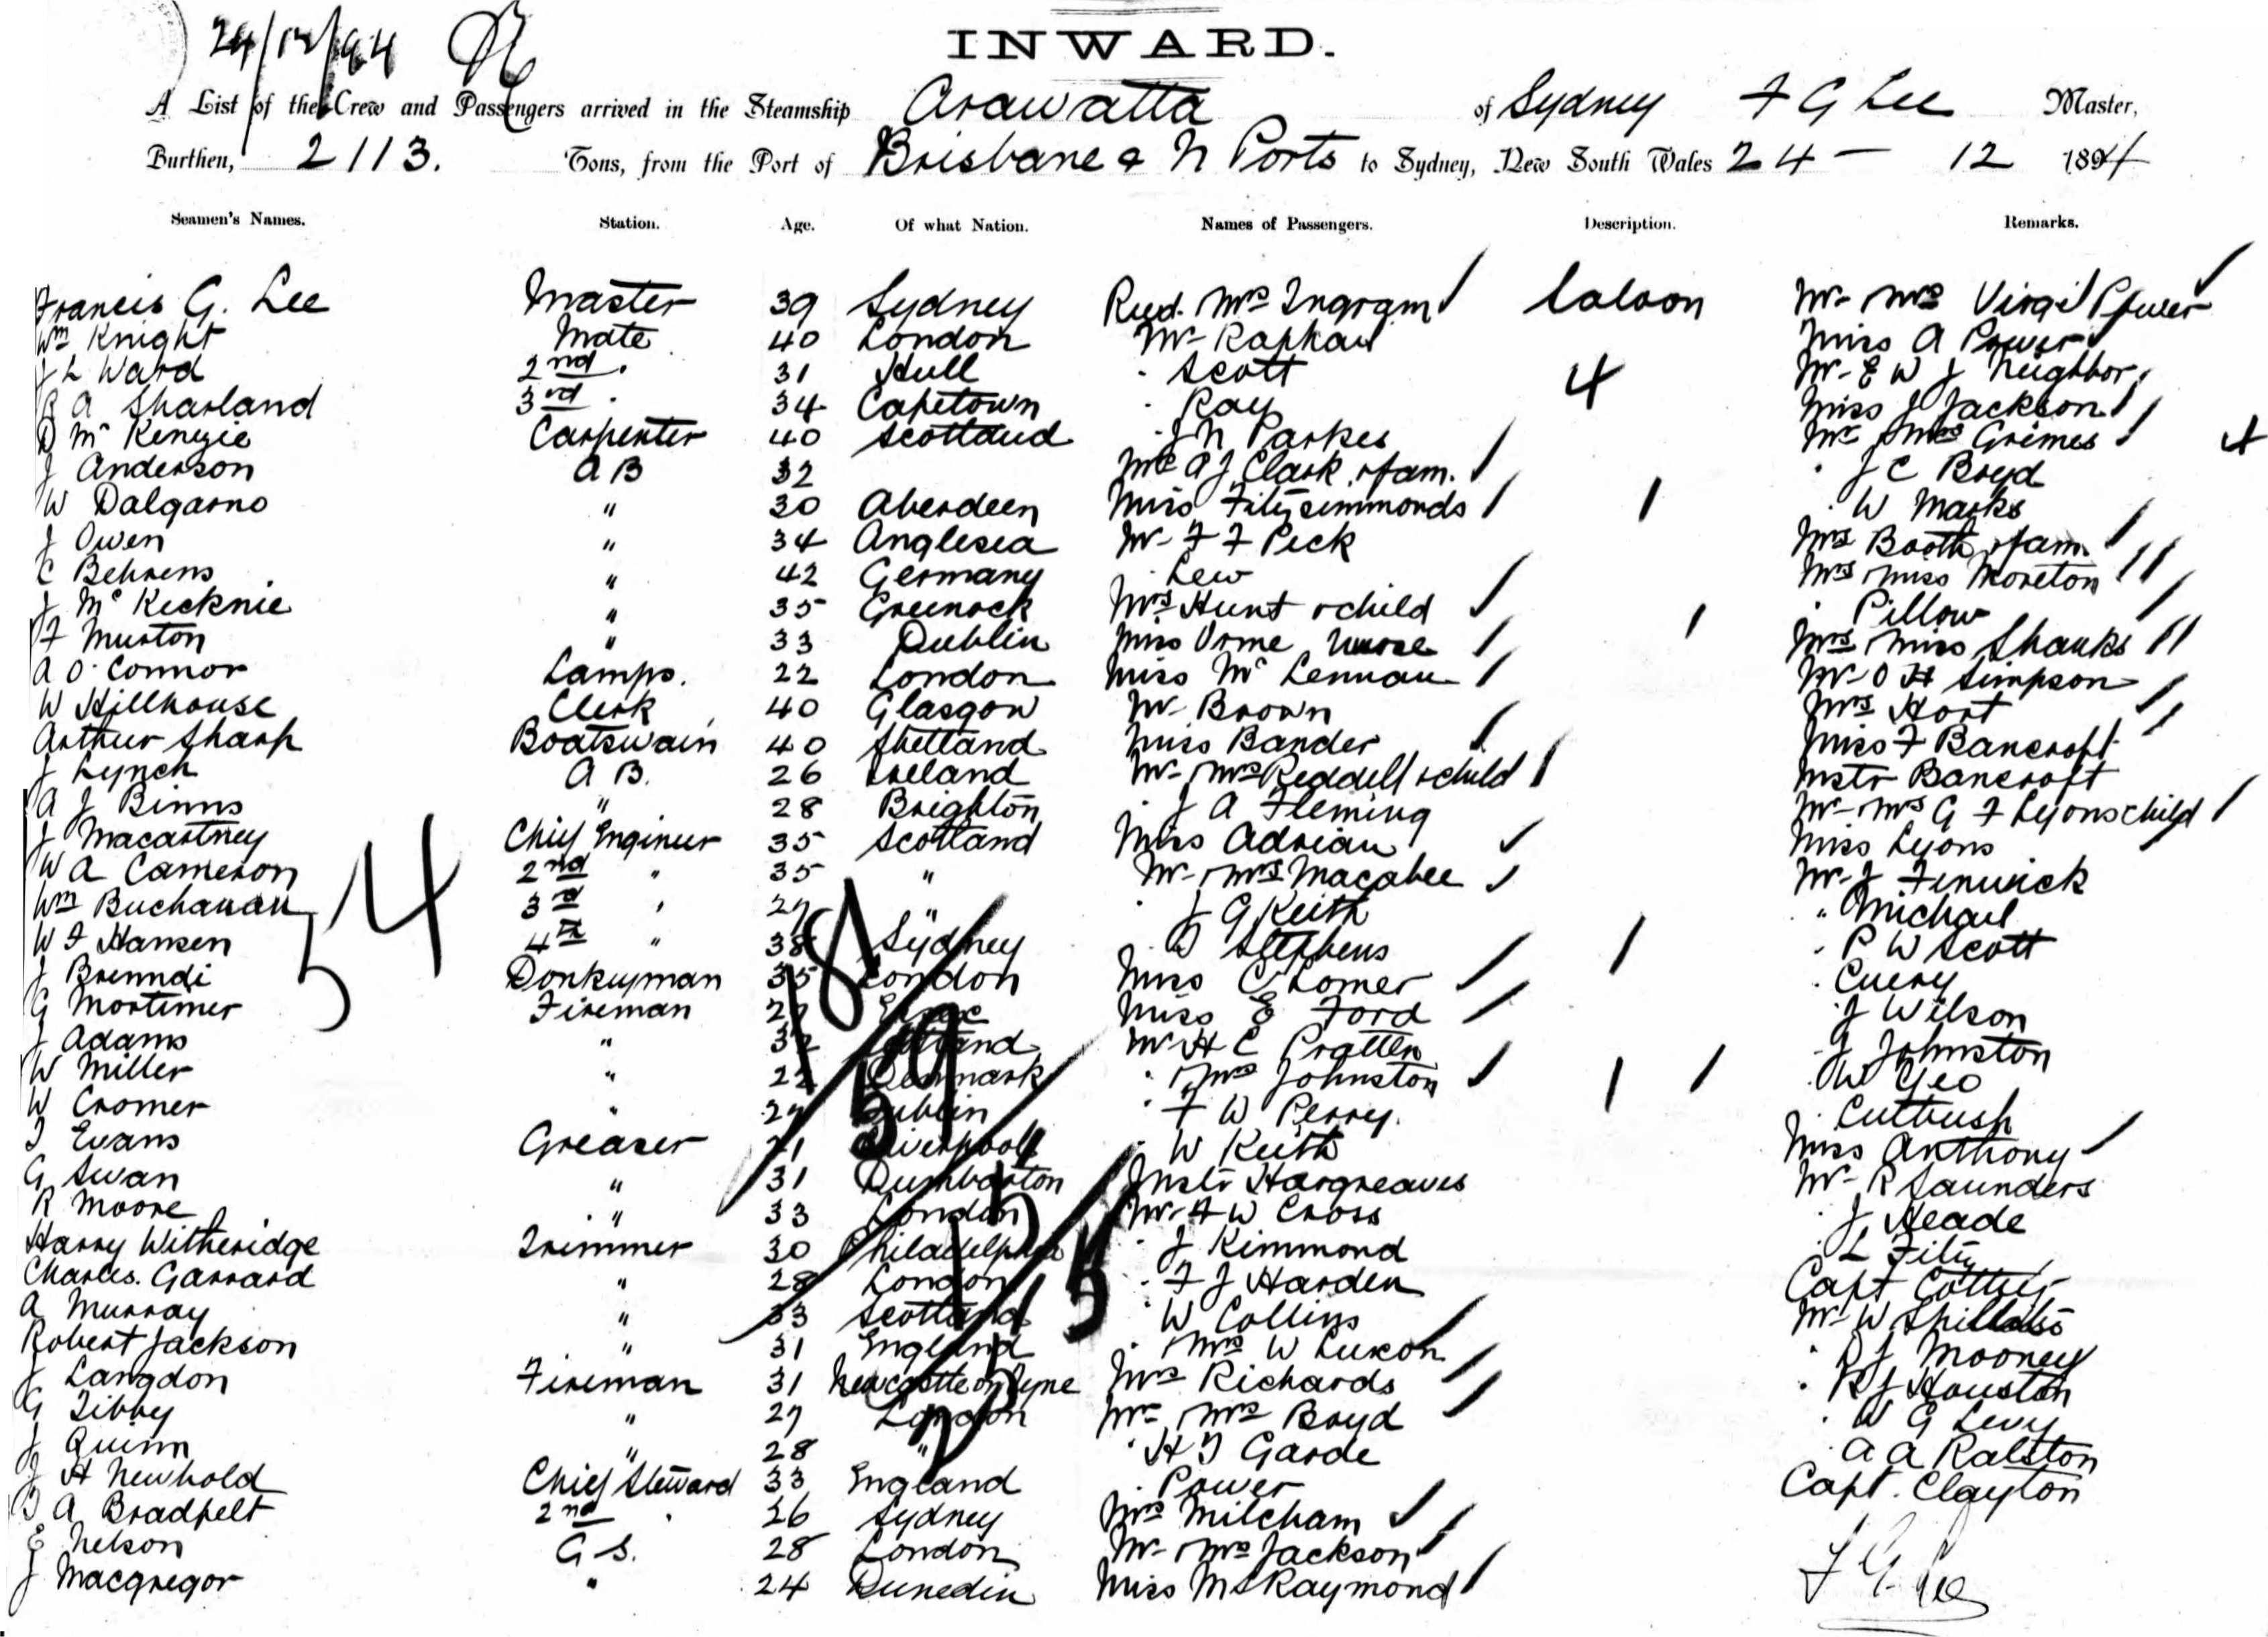 24/12/94
INWARD.
A List of the Crew and Passengers arrived in the Steamship Arawatta of Sydney F G Lee Master,
Burthen, 2113. Tons, from the Port of Brisbane & N Ports to Sydney, New South Wales 24 - 12 1894
Seamen's Names. Station. Age. Of what Nation. Names of Passengers. Description. Remarks.
Francis G. Lee Master 39 Sydney Revd. Mrs Ingram Saloon Mr Mrs Virgil Power
Wm Knight Mate 40 London Mr Raphael Miss A Power
J L Ward 2nd . 31 Hull . Scott 4 Mr E W J Neighbor
R A Sharland 3rd . 34 Capetown . Ray Miss J Jackson
D Mc Kenzie Carpenter 40 Scotland . J N Parkes Mr Mrs Grimes 4
J Anderson A B 32 Mrs A J Clark & fam. . J C Boyd
W Dalgarno " 30 Aberdeen Miss Fitzsimmonds . W Marks
J Owen " 34 Anglesea Mr F F Peck Mrs Booth & fam.
C Behrens " 42 Germany . Lew Mrs Miss Moreton
J Mc Kecknie " 35 Greenock Mrs Hunt & child . Pillow
F Murton " 33 Dublin Miss Orme Nurse Mrs Miss Shanks
A O'Connor Lamps. 22 London Miss Mc Lennan Mr O H Simpson
W Hillhouse Clerk 40 Glasgow Mr Brown Mrs Hort
Arthur Sharp Boatswain 40 Shetland Miss Bander Miss F Bancroft
J Lynch A B. 26 Ireland Mr Mrs Reddell & child Mstr Bancroft
A J Binns " 28 Brighton . J A Fleming Mr Mrs G F Lyons child
J Macartney Chief Engineer 35 Scotland Miss Adrian Miss Lyons
W A Cameron 2nd " 35 " Mr Mrs Macabee Mr J Fenwick
Wm Buchanan 3rd " 27 " . J G Keith " Michael
W F Hansen 4th " 38 Sydney . Stephens . P W Scott
J Brenndi Donkeyman 35 London Miss C Lomer . Cuery
G Mortimer Fireman 27 Miss E Ford . J Wilson
J Adams " 32 Mr H C Pratten . J Johnston
W Miller " 22 Denmark . Mrs Johnston . W Geo
W Cromer " 27 Dublin . F W Perry. . Cutbush
T Evans Greaser 21 Liverpool . W Keith Miss Anthony
G Swan " 31 Dumbarton Mstr Hargreaves Mr R Saunders
R Moore " 33 London Mr F W Cross . J Heade
Harry Witheridge Trimmer 30 Philadelphia . J Kimmond . L Fitz
Charles. Garrard " 28 London . F J Harden Capt
A Murray " 33 Scotland . W Collins Mr W
Robert Jackson " 31 England . Mrs W Luxon . D J Mooney
J Langdon Fireman 31 Newcastle on Tyne Mrs Richards . R J Houston
G Tibby " 27 London Mr Mrs Boyd . W G Levy
J Quinn " 28 " . H T Garde . A A Ralston
J H Newbold Chief Steward 33 England . Power Capt. Clayton
A Bradpelt 2nd . 26 Sydney Mrs Milcham
E Nelson G S. 28 London Mr Mrs Jackson
J Macgregor " 24 Dunedin Miss Mc Raymond
F G Lee
54